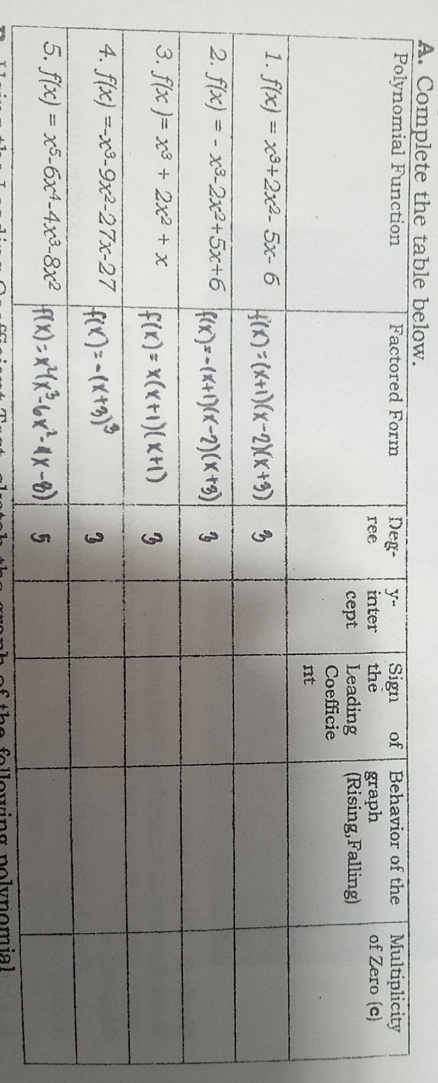 A. Complete the table below.
Polynomial Function
Factored Form
Deg-
ree
y-
inter
cept
Sign of
the
Leading
Coefficie
nt
Behavior of the
graph
(Rising,Falling)
Multiplicity
of Zero (c)
1. f(x) = x³+2x²- 5x- 6
f(x)=(x+1)(x-2)(x+3)
3
2. f(x) = - x³-2x²+5x+6
f(x)=-(x+1)(x-2)(x+3)
3
3. f(x )= x³ + 2x² + x
f(x)=x(x+1)(x+1)
3
4. f(x) =-x³-9x²-27x-27
f(x)=-(x+3)³
3
5. f(x) = x⁵-6x⁴-4x³-8x²
f(x)=x²(x³-6x²-4x-8)
5
graph of the following polynomial